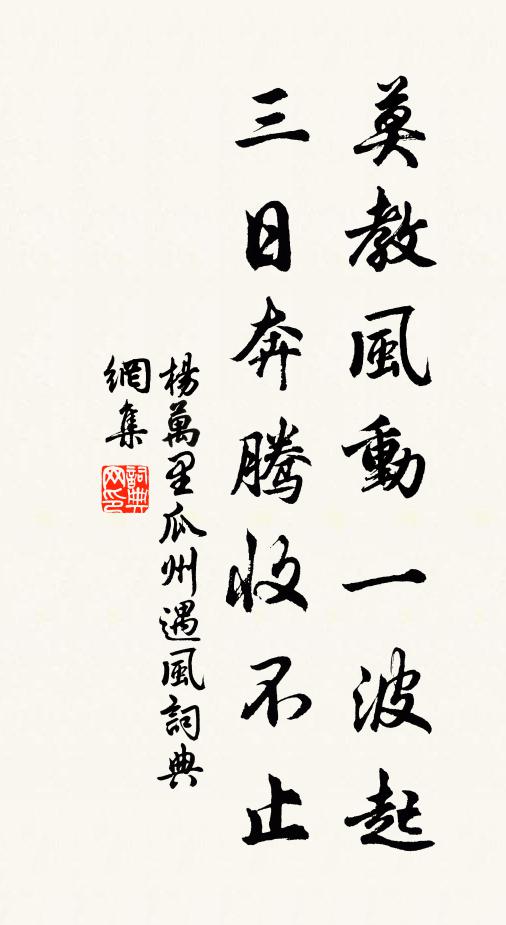 莫教風動一波起
三日奔騰收不止
楊萬里瓜州遇風詞典
網集
詞典
网印